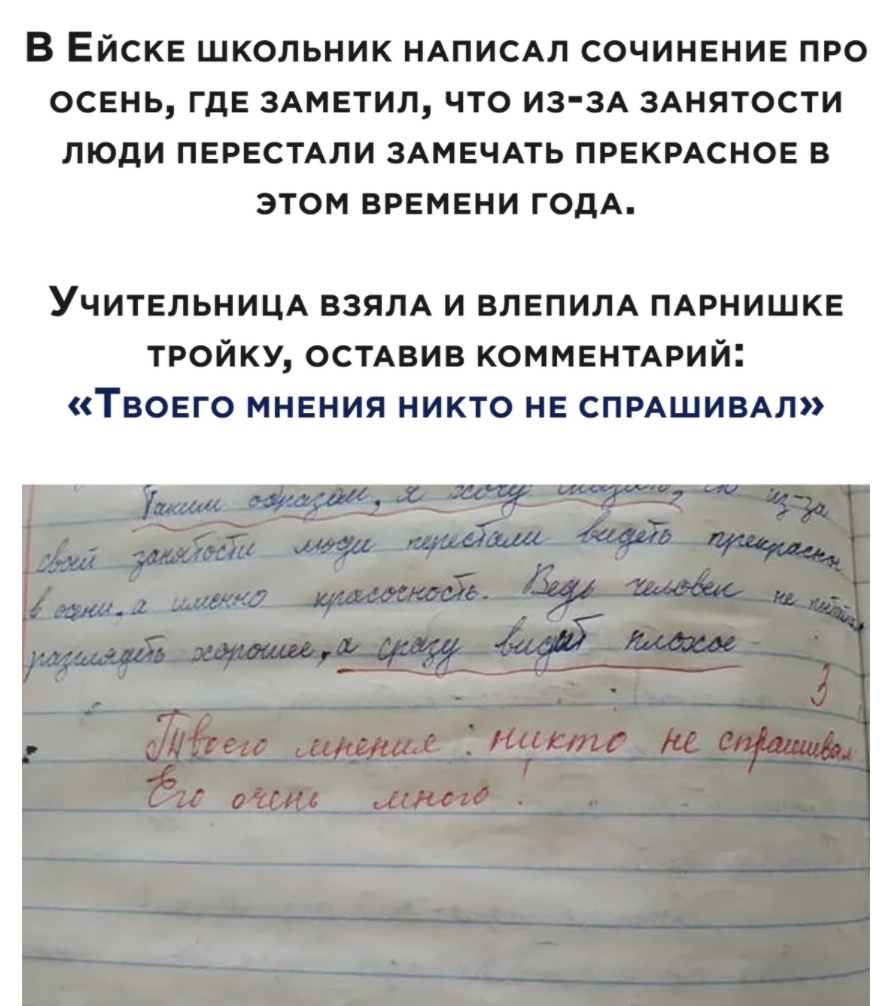 В Ейске школьник написал сочинение про
осень, где заметил, что из-за занятости
люди перестали замечать прекрасное в
этом времени года.
Учительница взяла и влепила парнишке
тройку, оставив комментарий:
«Твоего мнения никто не спрашивал»
Таким образом, я хочу сказать, из-за
своей занятости люди перестали видеть
в осени, а именно красочность. Ведь человек не
разглядеть хорошее, а сразу видит плохое
3
Твоего мнения никто не спрашивал
Его очень много!